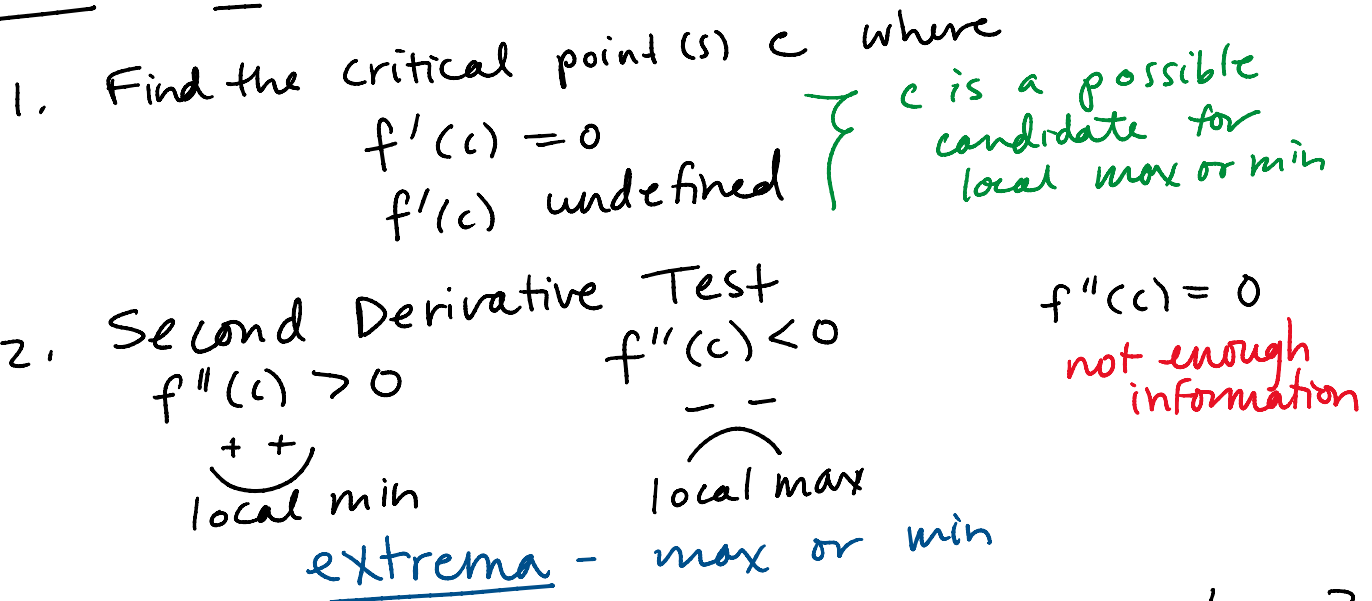 1. Find the critical point(s) c where
f'(c) = 0
f'(c) undefined
} c is a possible
candidate for
local max or min
2. Second Derivative Test
f"(c) > 0
f"(c) < 0
f"(c) = 0
+ +
- -
not enough
information
local min
local max
extrema - max or min